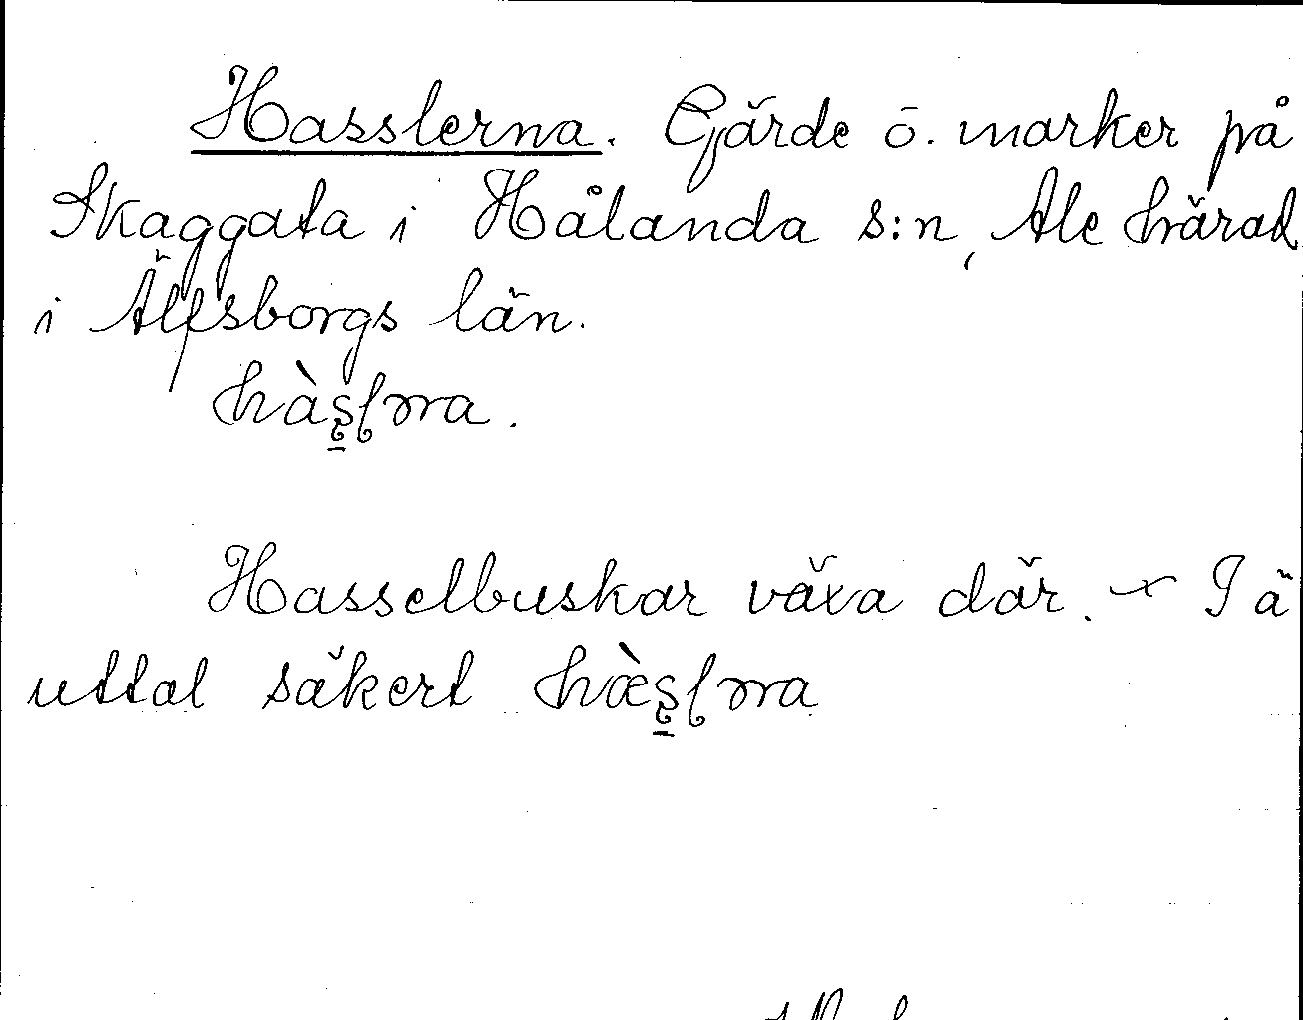 Hasslerna. Gärde o. marker på
Skaggata i Hålanda s:n, Ale härad
i Älfsborgs län.
Hasselbuskar växa där. — I ä
uttal säkert